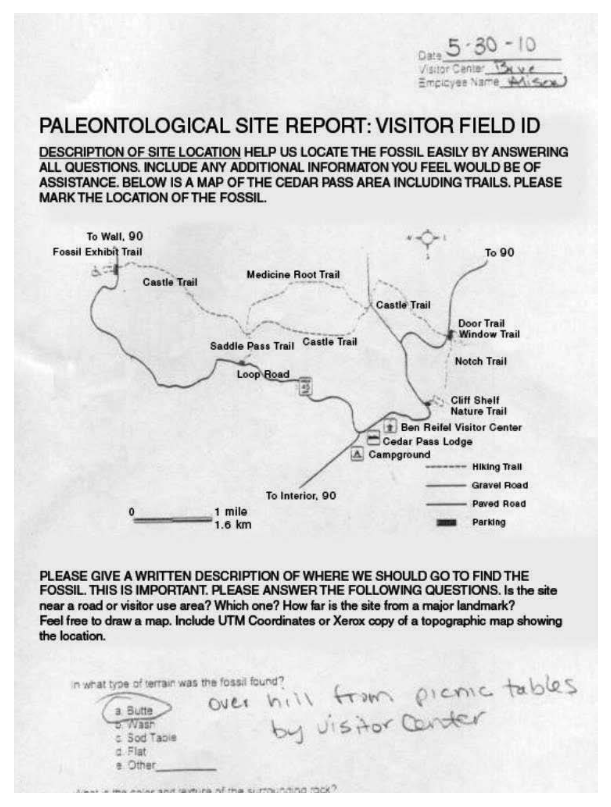 Date 5-30-10
Visitor Center
Employee Name Alison
PALEONTOLOGICAL SITE REPORT: VISITOR FIELD ID
DESCRIPTION OF SITE LOCATION HELP US LOCATE THE FOSSIL EASILY BY ANSWERING
ALL QUESTIONS. INCLUDE ANY ADDITIONAL INFORMATON YOU FEEL WOULD BE OF
ASSISTANCE. BELOW IS A MAP OF THE CEDAR PASS AREA INCLUDING TRAILS. PLEASE
MARK THE LOCATION OF THE FOSSIL.
To Wall, 90
Fossil Exhibit Trail
To 90
Castle Trail
Medicine Root Trail
Castle Trail
Door Trail
Window Trail
Saddle Pass Trail
Castle Trail
Notch Trail
Loop Road
Cliff Shelf
Nature Trail
Ben Reifel Visitor Center
Cedar Pass Lodge
Campground
Hiking Trail
Gravel Road
To Interior, 90
Paved Road
0 1 mile
1.6 km
Parking
PLEASE GIVE A WRITTEN DESCRIPTION OF WHERE WE SHOULD GO TO FIND THE
FOSSIL. THIS IS IMPORTANT. PLEASE ANSWER THE FOLLOWING QUESTIONS. Is the site
near a road or visitor use area? Which one? How far is the site from a major landmark?
Feel free to draw a map. Include UTM Coordinates or Xerox copy of a topographic map showing
the location.
In what type of terrain was the fossil found?
a. Butte
b. Wash
c. Sod Table
d. Flat
e. Other
over hill from picnic tables
by visitor center
What is the color and texture of the surrounding rock?